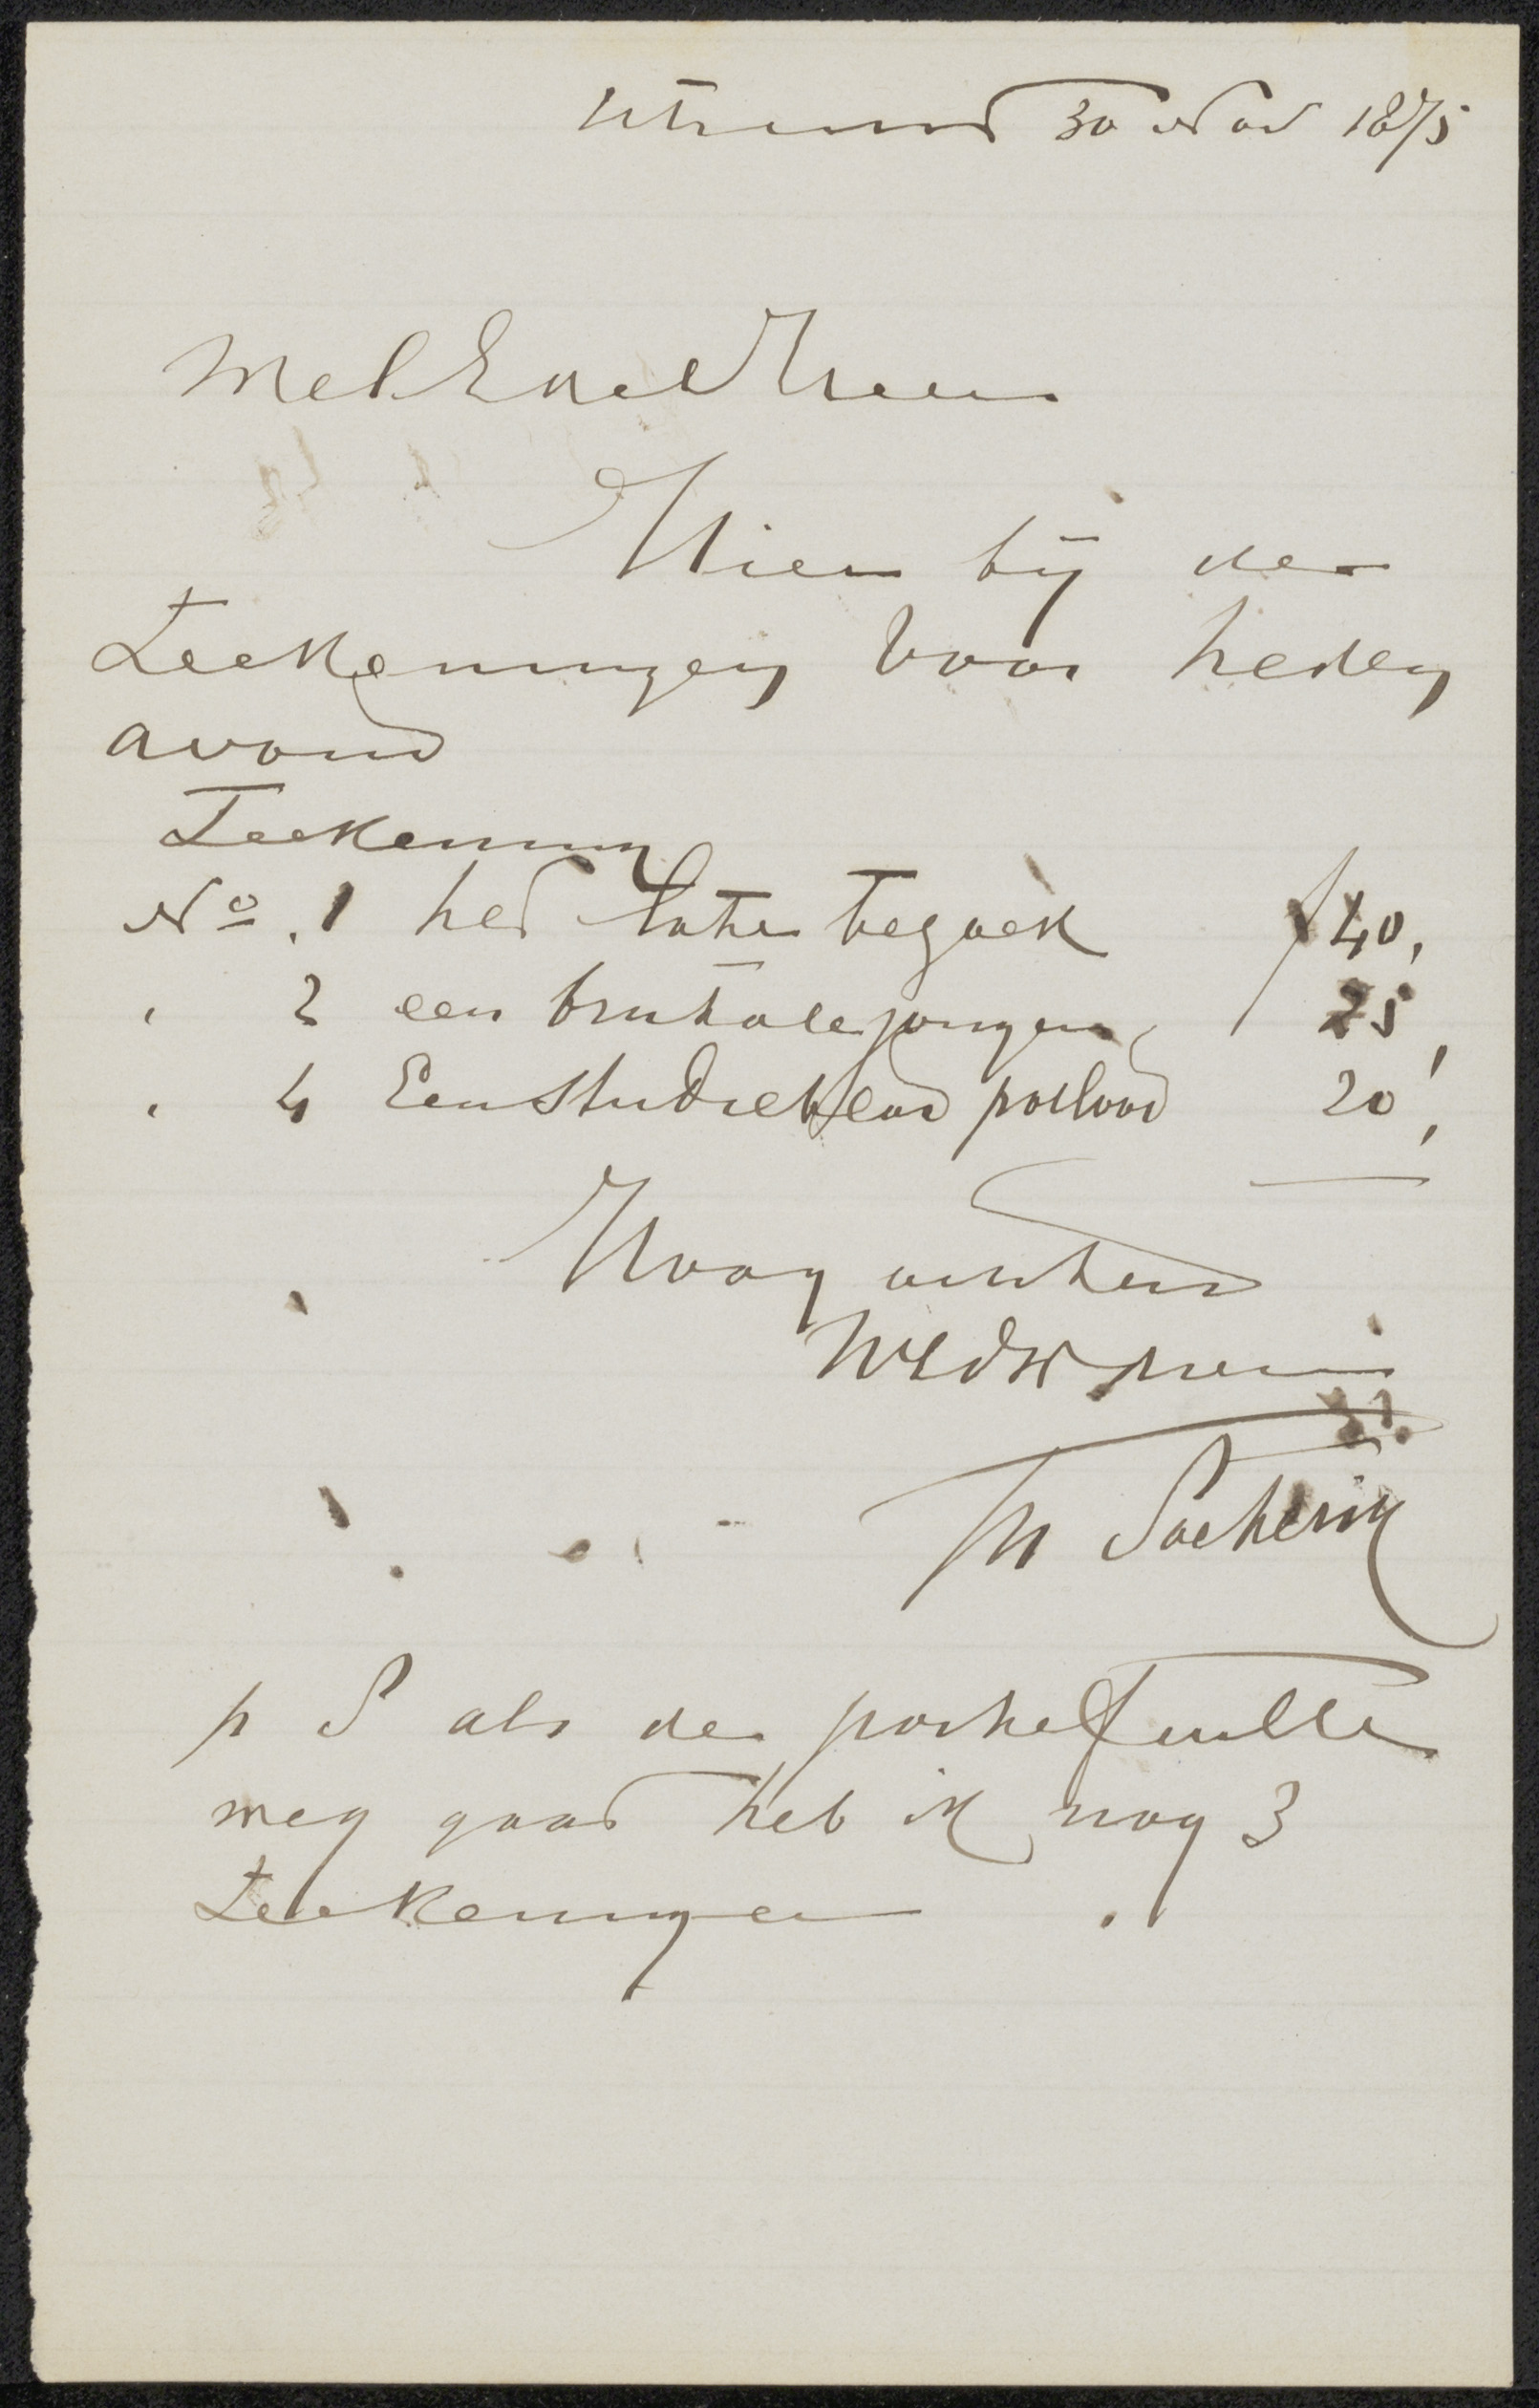 Utrecht 30 Nov 1875
Wel Edel Heer
Hier bij de
Teekeningen voor heden
avond
Teekening
No. 1 het late bezoek f 40,
" 2 een brutale jongen, 25,
" 4 Een studieblad potlood 20,
Hoog achtend
UEDW Dienr
Th Soeterik
p S als de portefeuille
weg gaat heb ik nog 3
Teekeningen .